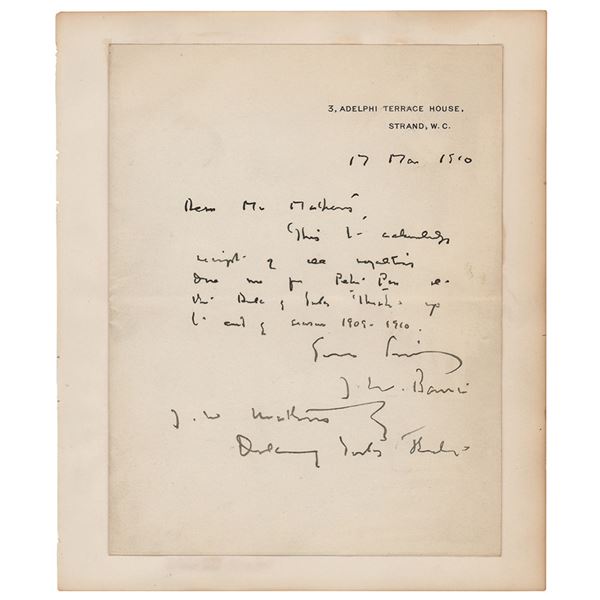 3, ADELPHI TERRACE HOUSE,
STRAND, W.C.
17 Mar 1910
Dear Mr Mathews,
This to acknowledge
receipt of all royalties
due me for Peter Pan at
the Duke of York's Theatre up
to end of season 1909-1910.
Yours Sincerely
J. M. Barrie
J. W. Mathews
Duke of York's Theatre